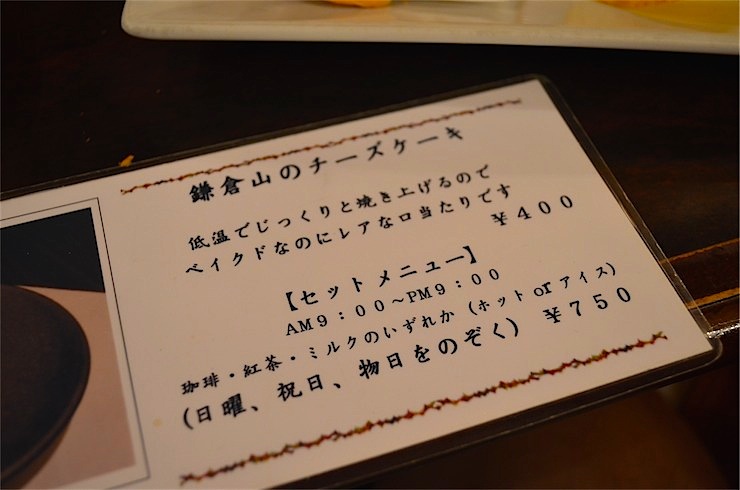 鎌倉山のチーズケーキ
低温でじっくりと焼き上げるので
ベイクドなのにレアな口当たりです
￥４００
【セットメニュー】
AM９：００～PM９：００
珈琲・紅茶・ミルクのいずれか（ホット or アイス）
(日曜、祝日、物日をのぞく) ￥７５０